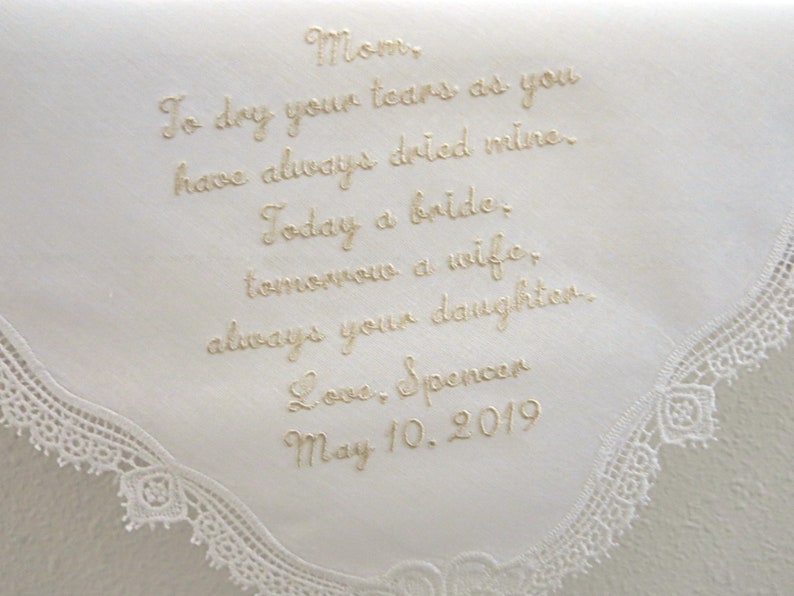 Mom,
To dry your tears as you
have always dried mine.
Today a bride,
tomorrow a wife,
always your daughter.
Love, Spencer
May 10, 2019